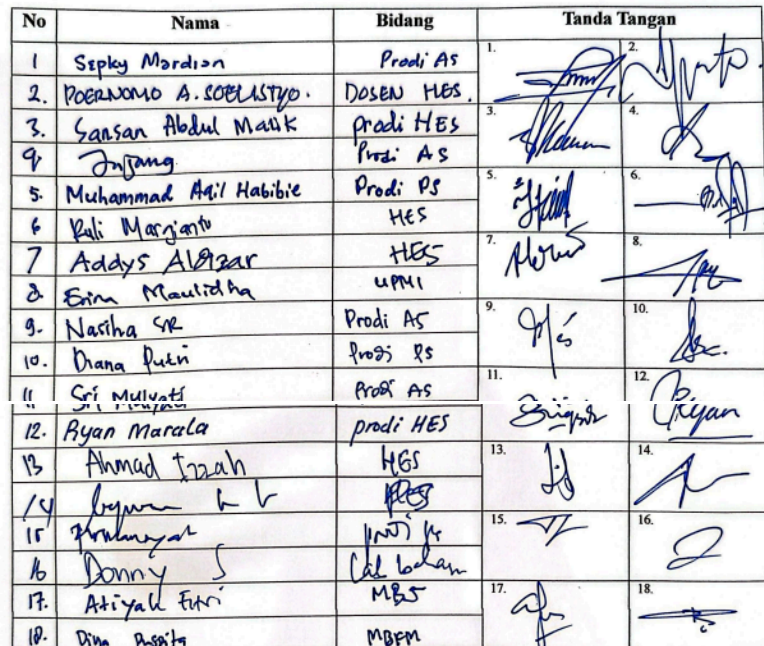 No Nama Bidang Tanda Tangan
1 Sepky Mardian Prodi AS 1. 2.
2. POERNOMO A. SOELISTYO. DOSEN HES.
3. Sansan Abdul Malik prodi HES 3. 4.
4 Prodi AS
5. Muhammad Aqil Habibie Prodi PS 5. 6.
6 Ruli Margianto HES
7 Addys Aldizar HES 7. 8.
8. Erina Maulidha UPMI
9. Nasiha SR Prodi AS 9. 10.
10. Diana Putri Prodi PS
11 Sri Mulyati Prodi AS 11. 12.
12. Ryan Marala prodi HES Ryan
13 Ahmad Izzah HES 13. 14.
14 HES
15 15. 16.
16 Donny S
17. Atiyah Fitri MBS 17. 18.
18. Dina Puspita MBFM